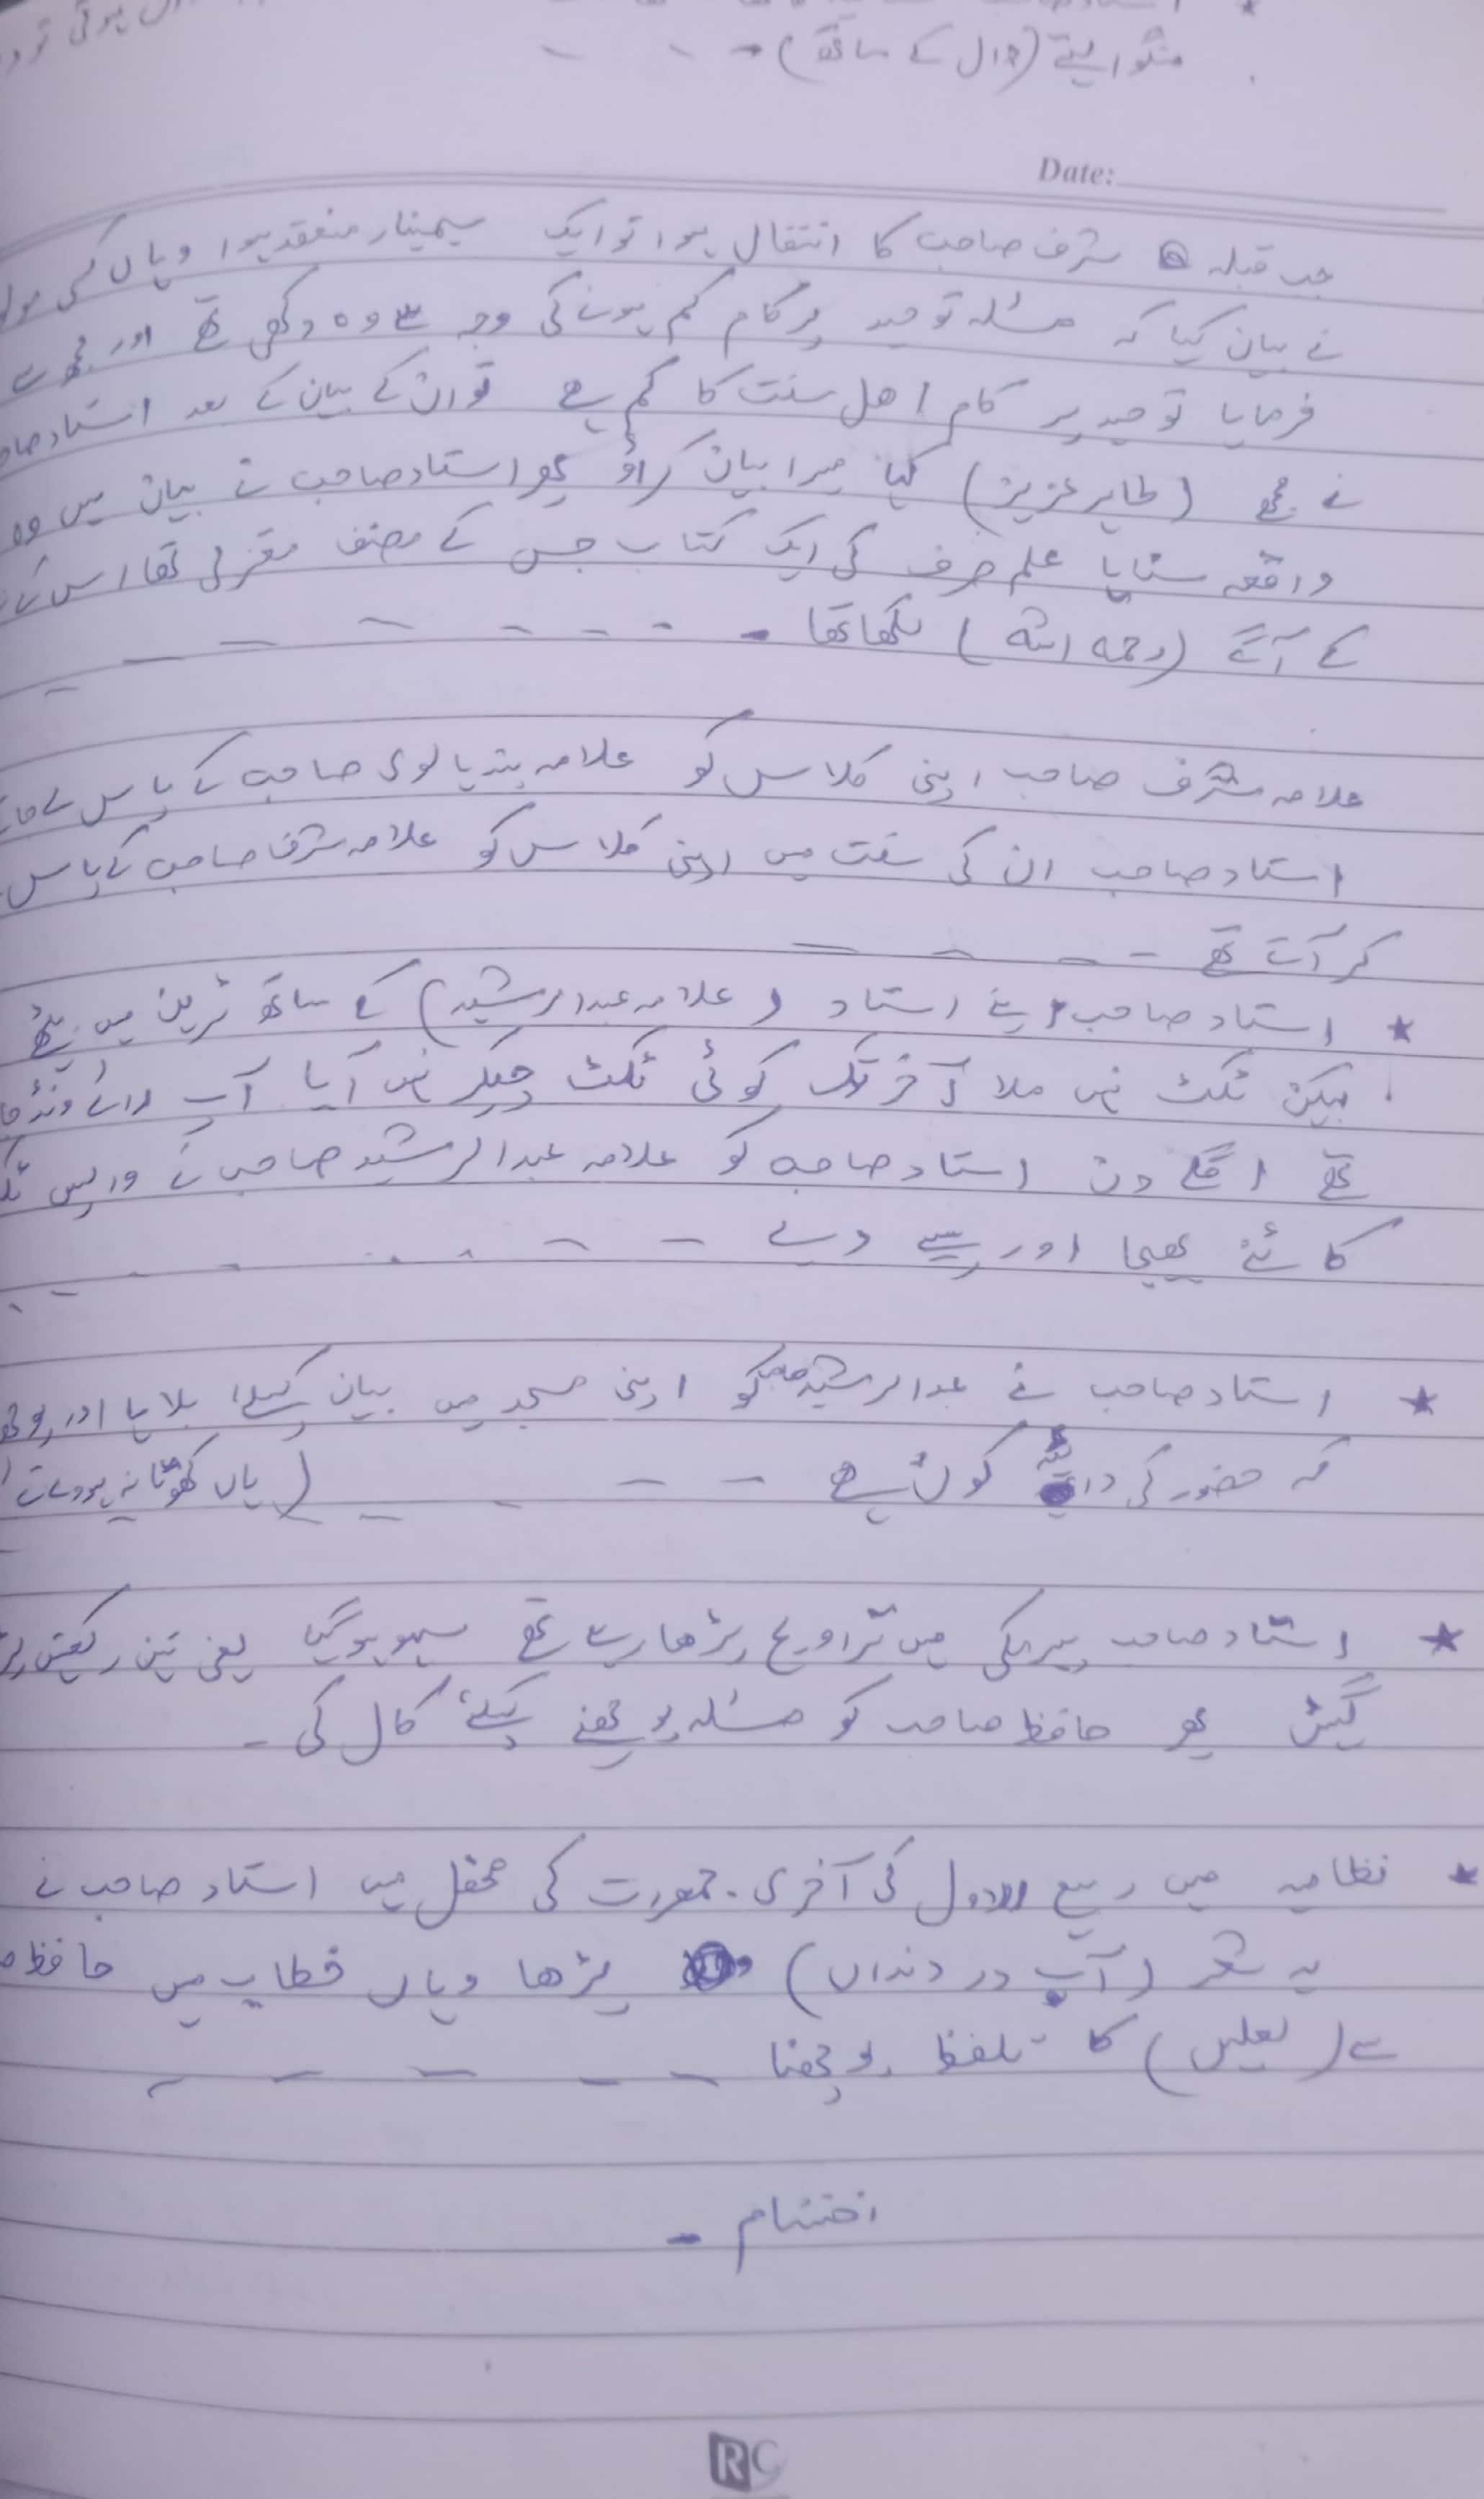 منگوا لیتے (دال کے ساتھ) -
Date:
جب قبلہ شرف صاحب کا انتقال ہوا تو ایک سیمینار منعقد ہوا وہاں کسی
نے بیان کیا کہ مسئلہ توحید پر کام کم ہونے کی وجہ سے وہ دکھی تھے اور مجھ سے
فرمایا توحید پر کام اھل سنت کا کم ہے تو ان کے بیان کے بعد استاد
نے مجھے (طاہر عزیز) کہا میرا بیان کراؤ پھر استاد صاحب نے بیان میں وہ
واقعہ سنایا علم صرف کی ایک کتاب جس کے مصنف معتزلی تھا اس کے
کے آگے (رحمہ اللہ) لکھا تھا -
علامہ شرف صاحب اپنی کلاس کو علامہ بندیالوی صاحب کے پاس لے
استاد صاحب ان کی سنت میں اپنی کلاس کو علامہ شرف صاحب کے پاس
کر آتے تھے -
★ استاد صاحب اپنے استاد (علامہ عبدالرشید) کے ساتھ ٹرین میں بیٹھے
لیکن ٹکٹ نہیں ملا آخر تک کوئی ٹکٹ چیکر نہیں آیا آپ رائے ونڈ
تھے اگلے دن استاد صاحب کو علامہ عبدالرشید صاحب نے واپس
کاٹنے بھیجا اور پیسے دیے -
★ استاد صاحب نے عبدالرشید صاحب کو اپنی مسجد میں بیان کیلئے بلایا اور
کہ حضور کی کون ہے - (ہاں
★ استاد صاحب میں تراویح پڑھا رہے تھے سہو ہو گیا یعنی تین رکعتیں
گئیں پھر حافظ صاحب کو مسئلہ پوچھنے کیلئے کال کی -
★ نظامیہ میں ربیع الاول کی آخری جمعرات کی محفل میں استاد صاحب نے
یہ شعر (آب در دنداں) پڑھا وہاں خطاب میں حافظ
سے (نعلین) کا تلفظ پوچھنا
اختتام -
RC